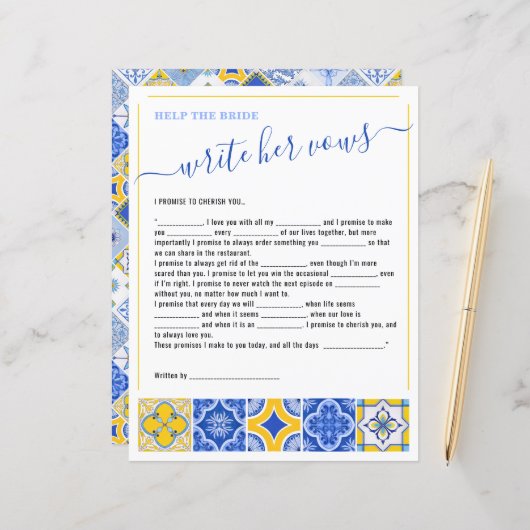 HELP THE BRIDE
write her vows
I PROMISE TO CHERISH YOU...
"____________, I love you with all my ____________ and I promise to make
you ____________ every ____________ of our lives together, but more
importantly I promise to always order something you ____________ so that
we can share in the restaurant.
I promise to always get rid of the ____________, even though I'm more
scared than you. I promise to let you win the occasional ____________, even
if I'm right. I promise to never watch the next episode on ____________
without you, no matter how much I want to.
I promise that every day we will ____________, when life seems
____________ and when it seems ____________, when our love is
____________ and when it is an ____________. I promise to cherish you, and
to always love you.
These promises I make to you today, and all the days ________________."
Written by ________________________